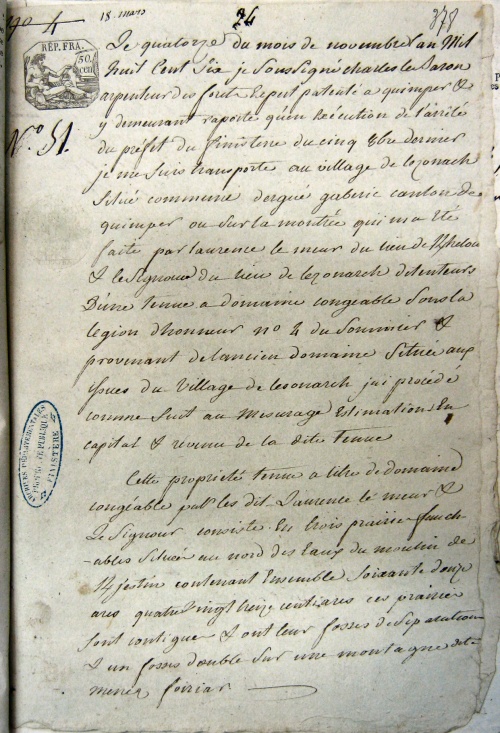 18. mars
24
378
RÉP. FRA.
50
CEN
N.º 51.
Le quatorze du mois de novembre an Mil
huit Cent Six je Soussigné charles le Baron
arpenteur des foret Expert patenté a quimper &
y demeurant raporte qu'en Exécution de l'arêté
du préfet du finisterre du cinq 8bre dernier
je me suis transporté au village de lezonarch
Situé commune dergué gaberic canton de
quimper ou sur la montrée qui m'a été
faite par laurence le meur du lieu de
& le Signour du lieu de lezonarch detenteurs
D'une tenue a domaine congeable sous la
légion d'honneur nº 4 du Sommier &
provenant de l'ancien domaine Située aux
yssues du Village de lesonarch j'ai procédé
comme Suit au Mesurage Estimation En
capital & revenu de la dite tenue
Cette propriété tenue a titre de domaine
congéable par les dit Laurence le meur &
Le Signour consiste En trois prairies fauch-
ables Située au nord des Eaux du moulin de
contenant Ensemble Soixante douze
ares quatre vingt treize centiares ces prairies
sont contigue & ont leur fosses de Séparation
& un fosses double sur une montagne dit
menez foiriar
ARCHIVES DÉPARTEMENTALES
FINISTÈRE